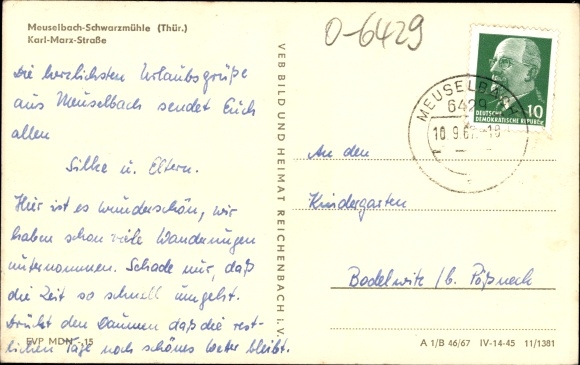 Meuselbach-Schwarzmühle (Thür.)
Karl-Marx-Straße
Die herzlichsten Urlaubsgrüße
aus Meuselbach sendet Euch
allen
Silke u. Eltern.
Hier ist es wunderschön, wir
haben schon viele Wanderungen
unternommen. Schade nur, daß
die Zeit so schnell umgeht.
Drückt den Daumen daß die rest-
lichen Tage noch schönes Wetter bleibt.
EVP MDN -.15
VEB BILD UND HEIMAT REICHENBACH i. V.
O-6429
MEUSELBACH
6429
10.9.67.-18
10
DEUTSCHE
DEMOKRATISCHE REPUBLIK
An den
Kindergarten
Bodelwitz / b. Pößneck
A 1/B 46/67 IV-14-45 11/1381